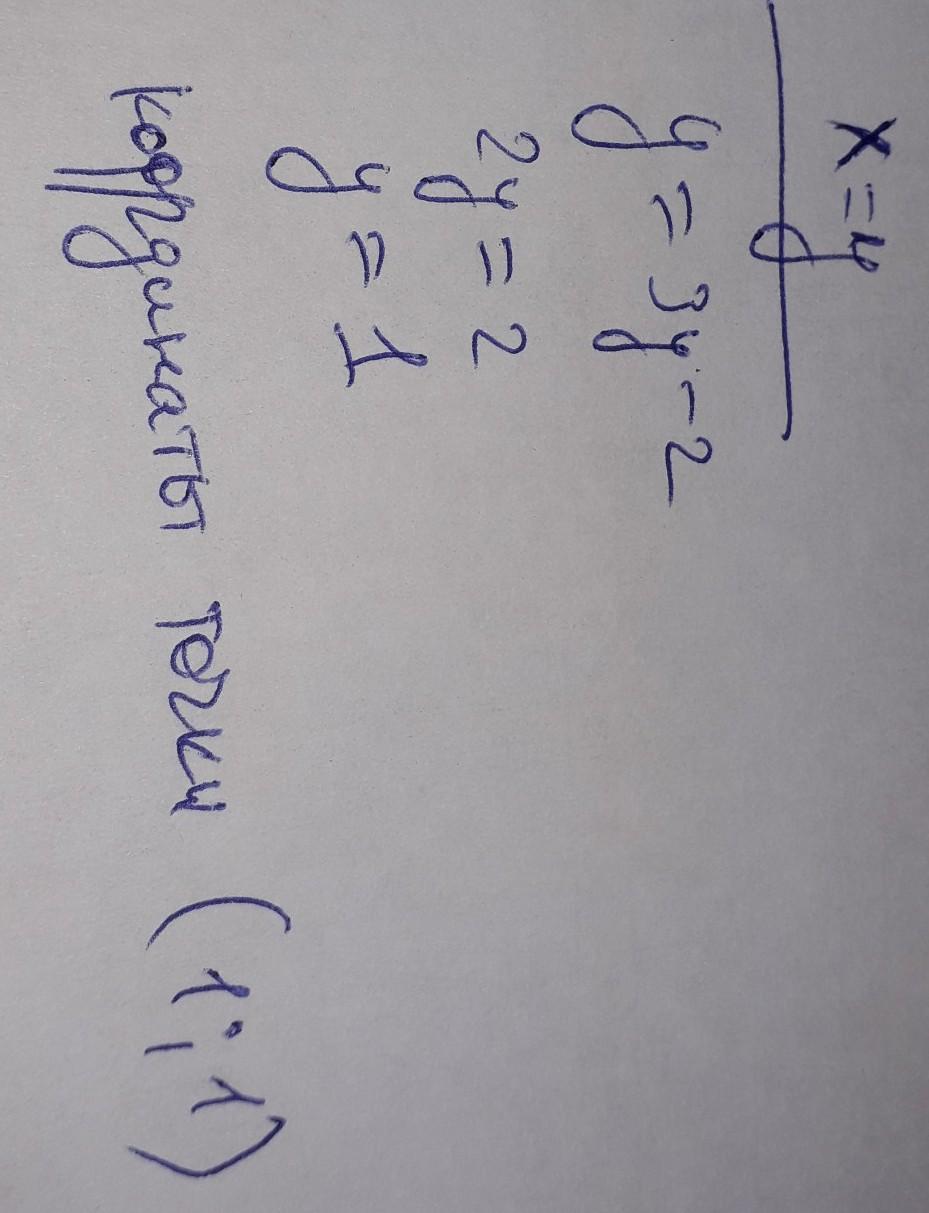 x = y
y = 3y - 2
2y = 2
y = 1
координаты точки (1; 1)